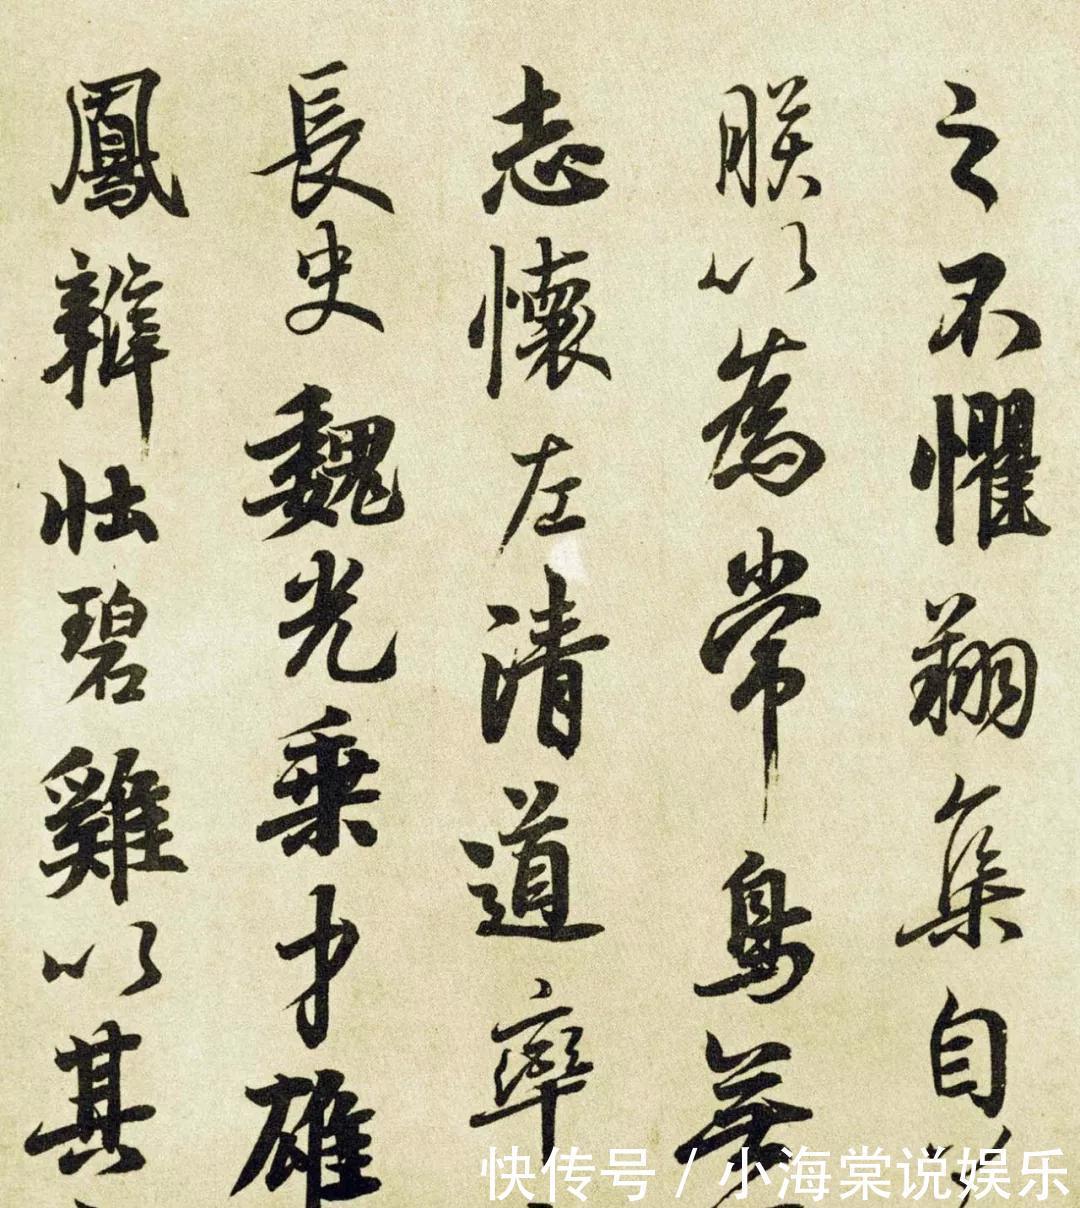 之不懼翔集自
朕以為常鳥無
志懷左清道率
長史魏光乗才雄
鳳辯壮碧雞以其
快传号/小海棠说娱乐